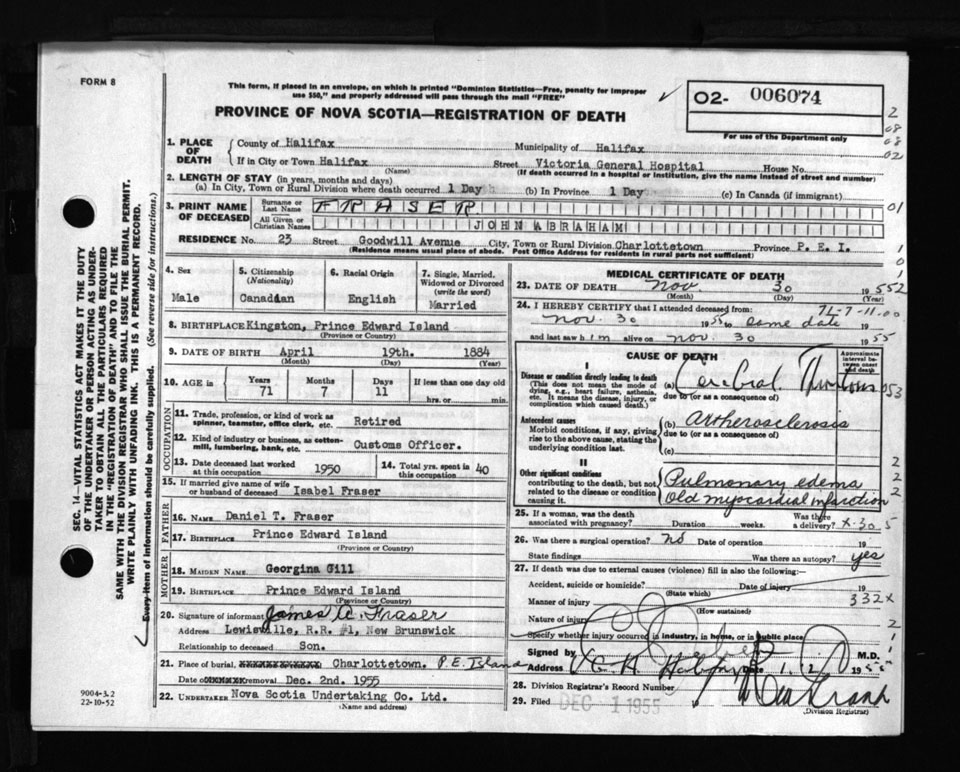 FORM 8
This form, if placed in an envelope, on which is printed "Dominion Statistics—Free, penalty for improper
use $50," and properly addressed will pass through the mail "FREE"
PROVINCE OF NOVA SCOTIA—REGISTRATION OF DEATH
02- 006074
For use of the Department only
SEC. 14—VITAL STATISTICS ACT MAKES IT THE DUTY
OF THE UNDERTAKER OR PERSON ACTING AS UNDER-
TAKER TO OBTAIN ALL THE PARTICULARS REQUIRED
IN THE "REGISTRATION OF DEATH" AND TO FILE THE
SAME WITH THE DIVISION REGISTRAR WHO SHALL ISSUE THE BURIAL PERMIT.
WRITE PLAINLY WITH UNFADING INK. THIS IS A PERMANENT RECORD.
Every item of information should be carefully supplied. (See reverse side for instructions.)
1. PLACE OF DEATH
County of Halifax Municipality of Halifax
If in City or Town Halifax Street Victoria General Hospital House No.
(Name) (If death occurred in a hospital or institution, give the name instead of street and number)
2. LENGTH OF STAY (in years, months and days)
(a) In City, Town or Rural Division where death occurred 1 Day (b) In Province 1 Day (c) In Canada (if immigrant)
3. PRINT NAME OF DECEASED
Surname or Last Name FRASER
All Given or Christian Names JOHN ABRAHAM
RESIDENCE No. 23 Street Goodwill Avenue City, Town or Rural Division Charlottetown Province P. E. I.
(Residence means usual place of abode. Post Office Address for residents in rural parts not sufficient)
4. Sex Male
5. Citizenship (Nationality) Canadian
6. Racial Origin English
7. Single, Married, Widowed or Divorced (write the word) Married
8. BIRTHPLACE Kingston, Prince Edward Island
(Province or Country)
9. DATE OF BIRTH April 19th. 1884
(Month) (Day) (Year)
10. AGE in Years 71 Months 7 Days 11 If less than one day old
hrs. or min.
OCCUPATION
11. Trade, profession, or kind of work as spinner, teamster, office clerk, etc. Retired
12. Kind of industry or business, as cotton-mill, lumbering, bank, etc. Customs Officer.
13. Date deceased last worked at this occupation 1950
14. Total yrs. spent in this occupation 40
15. If married give name of wife or husband of deceased Isabel Fraser
FATHER
16. NAME Daniel T. Fraser
17. BIRTHPLACE Prince Edward Island
(Province or Country)
MOTHER
18. MAIDEN NAME Georgina Gill
19. BIRTHPLACE Prince Edward Island
(Province or Country)
20. Signature of informant James Fraser
Address Lewisville, R.R. #1, New Brunswick
Relationship to deceased Son.
21. Place of burial, Charlottetown. P.E. Island
Date of removal Dec. 2nd. 1955
22. UNDERTAKER Nova Scotia Undertaking Co. Ltd.
(Name and address)
9004-3.2
22-10-52
MEDICAL CERTIFICATE OF DEATH
23. DATE OF DEATH Nov. 30 1955
(Month) (Day) (Year)
24. I HEREBY CERTIFY that I attended deceased from:
Nov. 30 1955 to same date 19
and last saw him alive on Nov. 30 1955
CAUSE OF DEATH
Approximate interval between onset and death
I
Disease or condition directly leading to death
(This does not mean the mode of dying, e.g., heart failure, asthenia, etc. It means the disease, injury, or complication which caused death.)
(a) Cerebral
due to (or as a consequence of)
Antecedent causes
Morbid conditions, if any, giving rise to the above cause, stating the underlying condition last.
(b) Artherosclerosis
due to (or as a consequence of)
(c)
II
Other significant conditions
contributing to the death, but not related to the disease or condition causing it.
Pulmonary edema
Old myocardial infarction
25. If a woman, was the death associated with pregnancy? Duration weeks. Was there a delivery?
26. Was there a surgical operation? No Date of operation 19
State findings Was there an autopsy? yes
27. If death was due to external causes (violence) fill in also the following:—
Accident, suicide or homicide? Date of injury 19
(State which)
Manner of injury 332X
(How sustained)
Nature of injury
Specify whether injury occurred in industry, in home, or in public place
Signed by M.D.
Address V.G.H. Halifax Date 1. 12 1955
28. Division Registrar's Record Number
29. Filed DEC 1 1955
(Division Registrar)